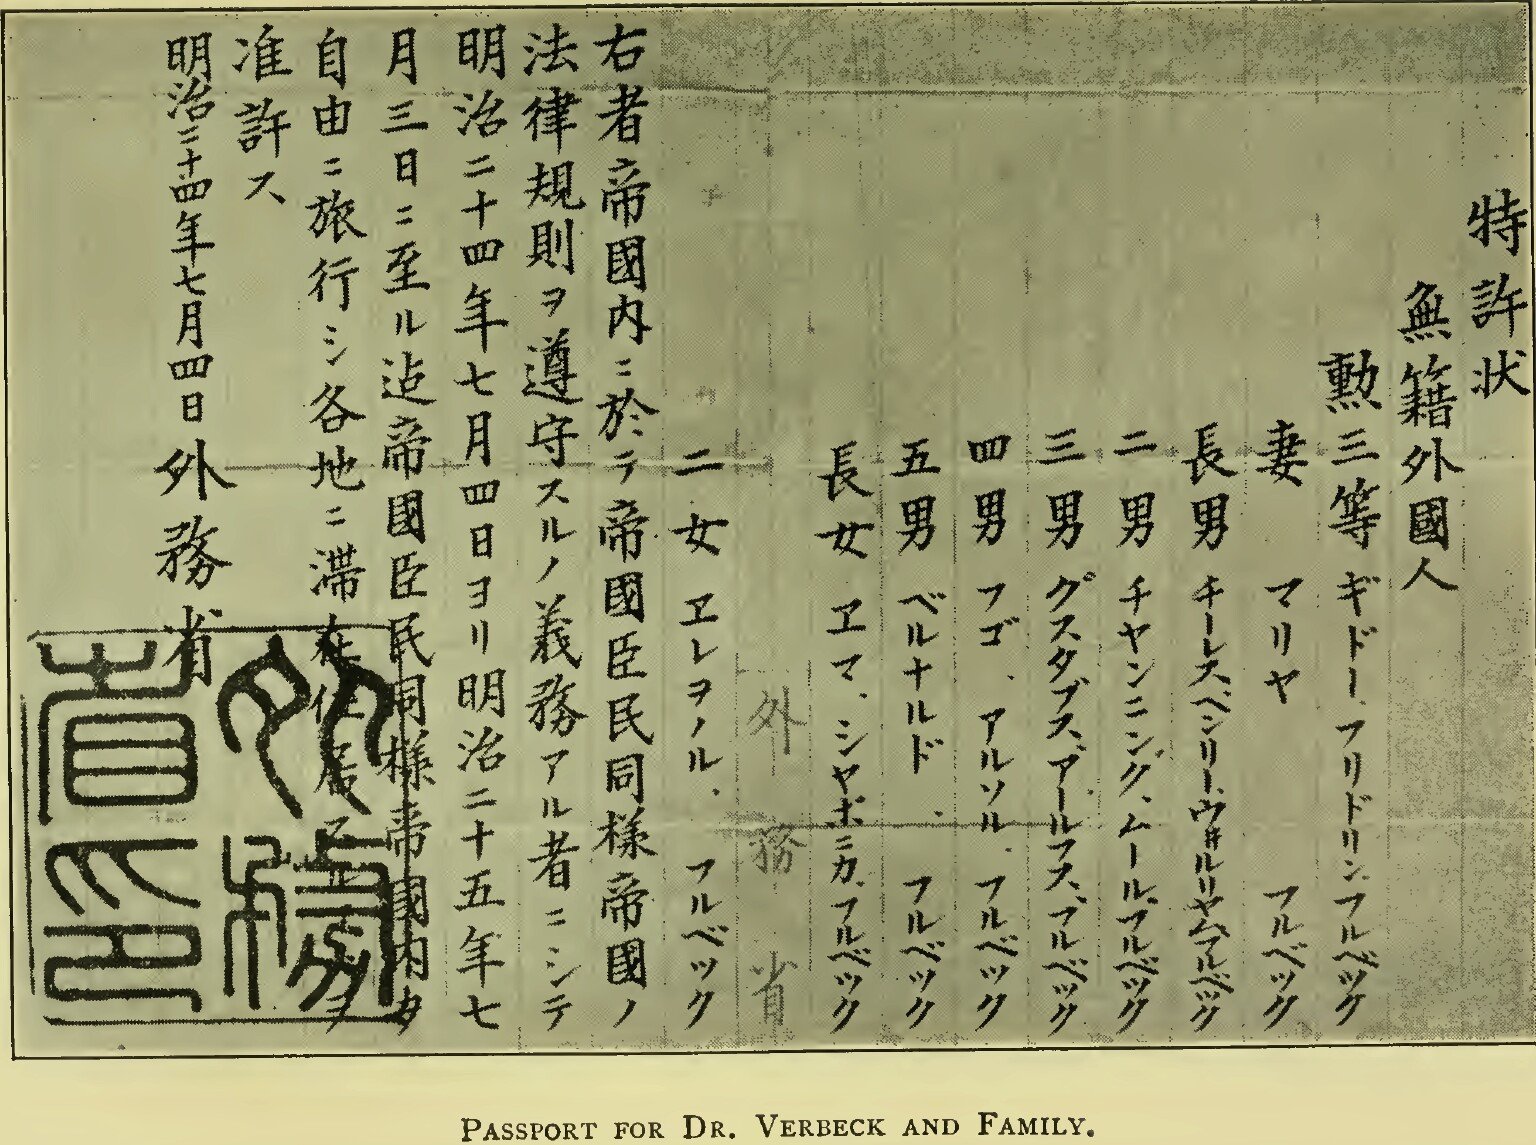 特許状
無籍外國人
勲三等 ギドー、フリドリン、フルベック
妻 マリヤ フルベック
長男 チーレスヘンリー、ウ井ルリヤムフルベック
二男 チヤンニング、ムール、フルベック
三男 グスタブス、アールフス、フルベック
四男 フゴ、アルソル、フルベック
五男 ベルナルド、フルベック
長女 ヱマ、シヤポニカ、フルベック
外務省
二女 ヱレヲノル、フルベック
右者帝國内ニ於テ帝國臣民同様帝國ノ
法律規則ヲ遵守スルノ義務アル者ニシテ
明治二十四年七月四日ヨリ明治二十五年七
月三日ニ至ル迠帝國臣民同様帝國内
自由ニ旅行シ各地ニ滞在住居スルヲ
准許ス
明治二十四年七月四日 外務省
外務省印
PASSPORT FOR DR. VERBECK AND FAMILY.